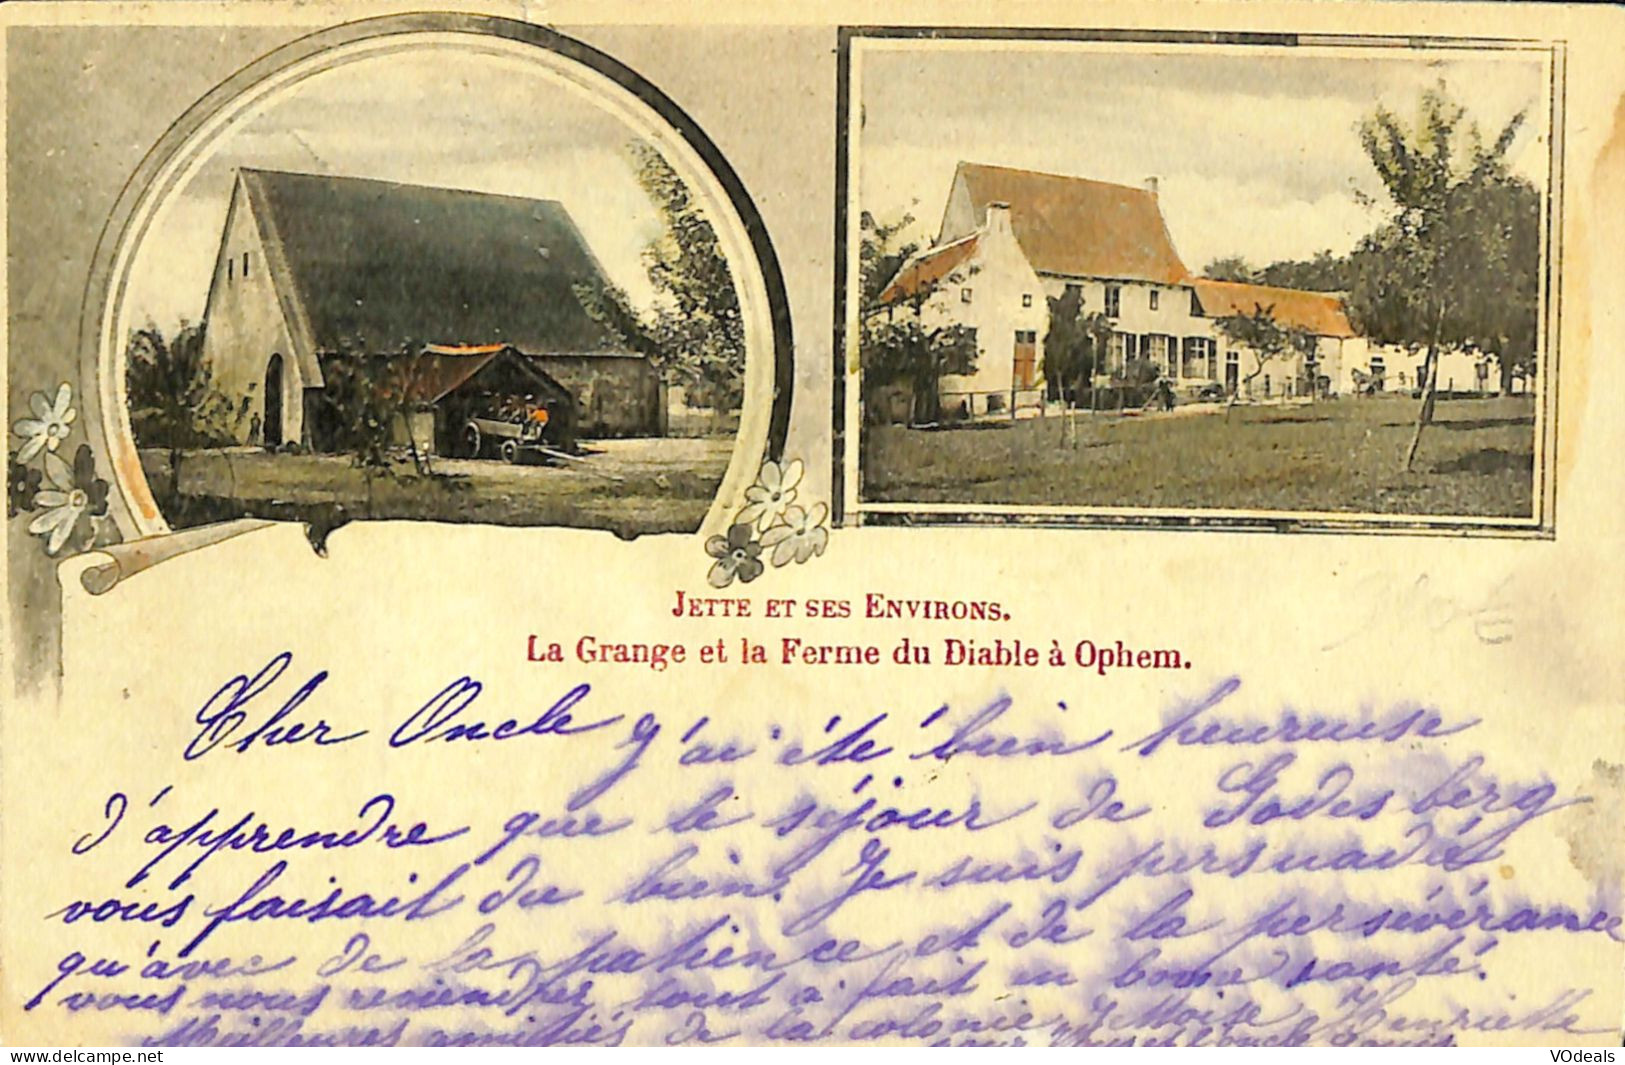 JETTE ET SES ENVIRONS.
La Grange et la Ferme du Diable à Ophem.
Cher Oncle J'ai été bien heureuse
d'apprendre que le séjour de Godesberg
vous faisait du bien. Je suis persuadée
qu'avec de la patience et de la persévérance
vous nous reviendrez tout à fait en bonne santé.
Meilleures amitiés de la colonie Henriette
pour Vous et l'oncle Louis
delcampe.net
VOdeals